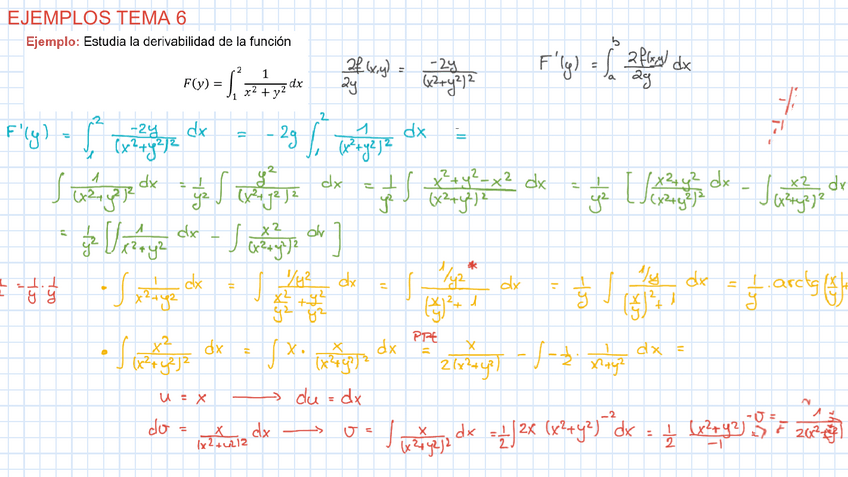 EJEMPLOS TEMA 6
Ejemplo: Estudia la derivabilidad de la función
F(y) = ∫₁² 1/(x² + y²) dx
2f/2y (x,y) = -2y/(x²+y²)²
F'(y) = ∫ₐᵇ 2f(x,y)/2y dx
F'(y) = ∫₁² -2y/(x²+y²)² dx = -2y ∫₁² 1/(x²+y²)² dx =
∫ 1/(x²+y²)² dx = 1/y² ∫ y²/(x²+y²)² dx = 1/y² ∫ x²+y²-x²/(x²+y²)² dx = 1/y² [∫ x²+y²/(x²+y²)² dx - ∫ x²/(x²+y²)² dx
= 1/y² [∫ 1/x²+y² dx - ∫ x²/(x²+y²)² dx ]
= 1/y · 1/y
• ∫ 1/x²+y² dx = ∫ 1/y²/(x²/y² + y²/y²) dx = ∫ 1/y² */((x/y)²+1) dx = 1/y ∫ 1/y/((x/y)²+1) dx = 1/y · arctg(x/y)+
• ∫ x²/(x²+y²)² dx = ∫ x · x/(x²+y²)² dx = x/2(x²+y²) - ∫ -1/2 · 1/x²+y² dx =
u = x → du = dx
dv = x/(x²+y²)² dx → v = ∫ x/(x²+y²)² dx = 1/2 ∫ 2x (x²+y²)⁻² dx = 1/2 (x²+y²)⁻¹/-1